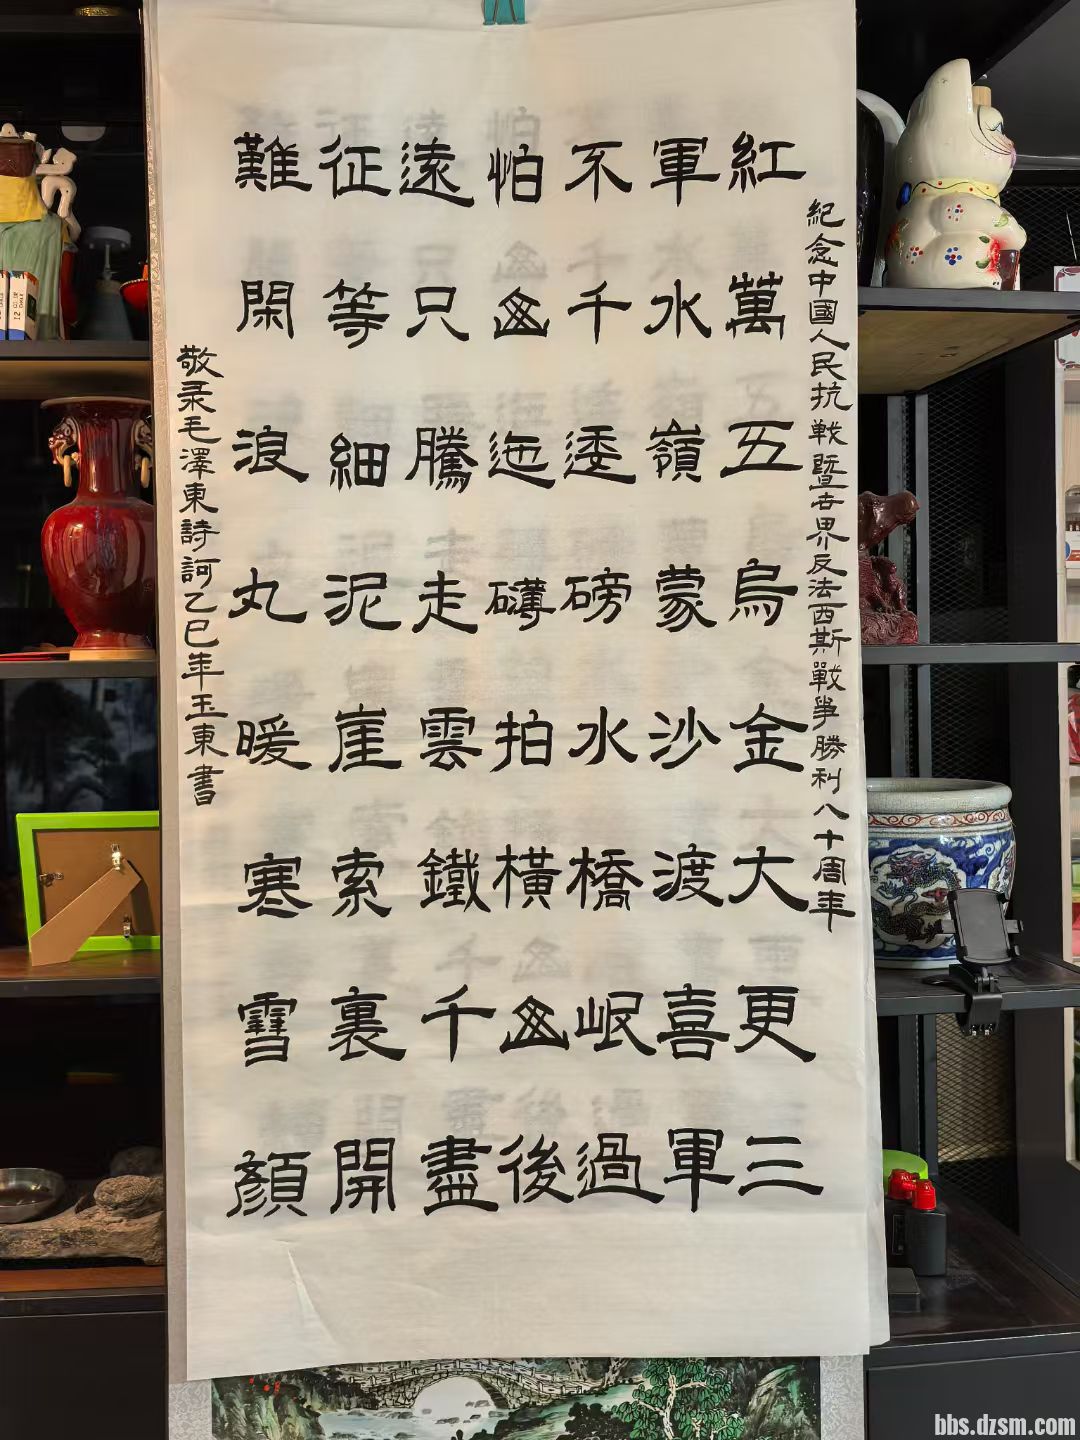 紀念中國人民抗戰暨世界反法西斯戰爭勝利八十周年
紅軍不怕遠征難
萬水千山只等閑
五嶺逶迤騰細浪
烏蒙磅礴走泥丸
金沙水拍雲崖暖
大渡橋橫鐵索寒
更喜岷山千裏雪
三軍過後盡開顏
敬录毛澤東詩詞乙巳年玉東書
bbs.dzsm.com